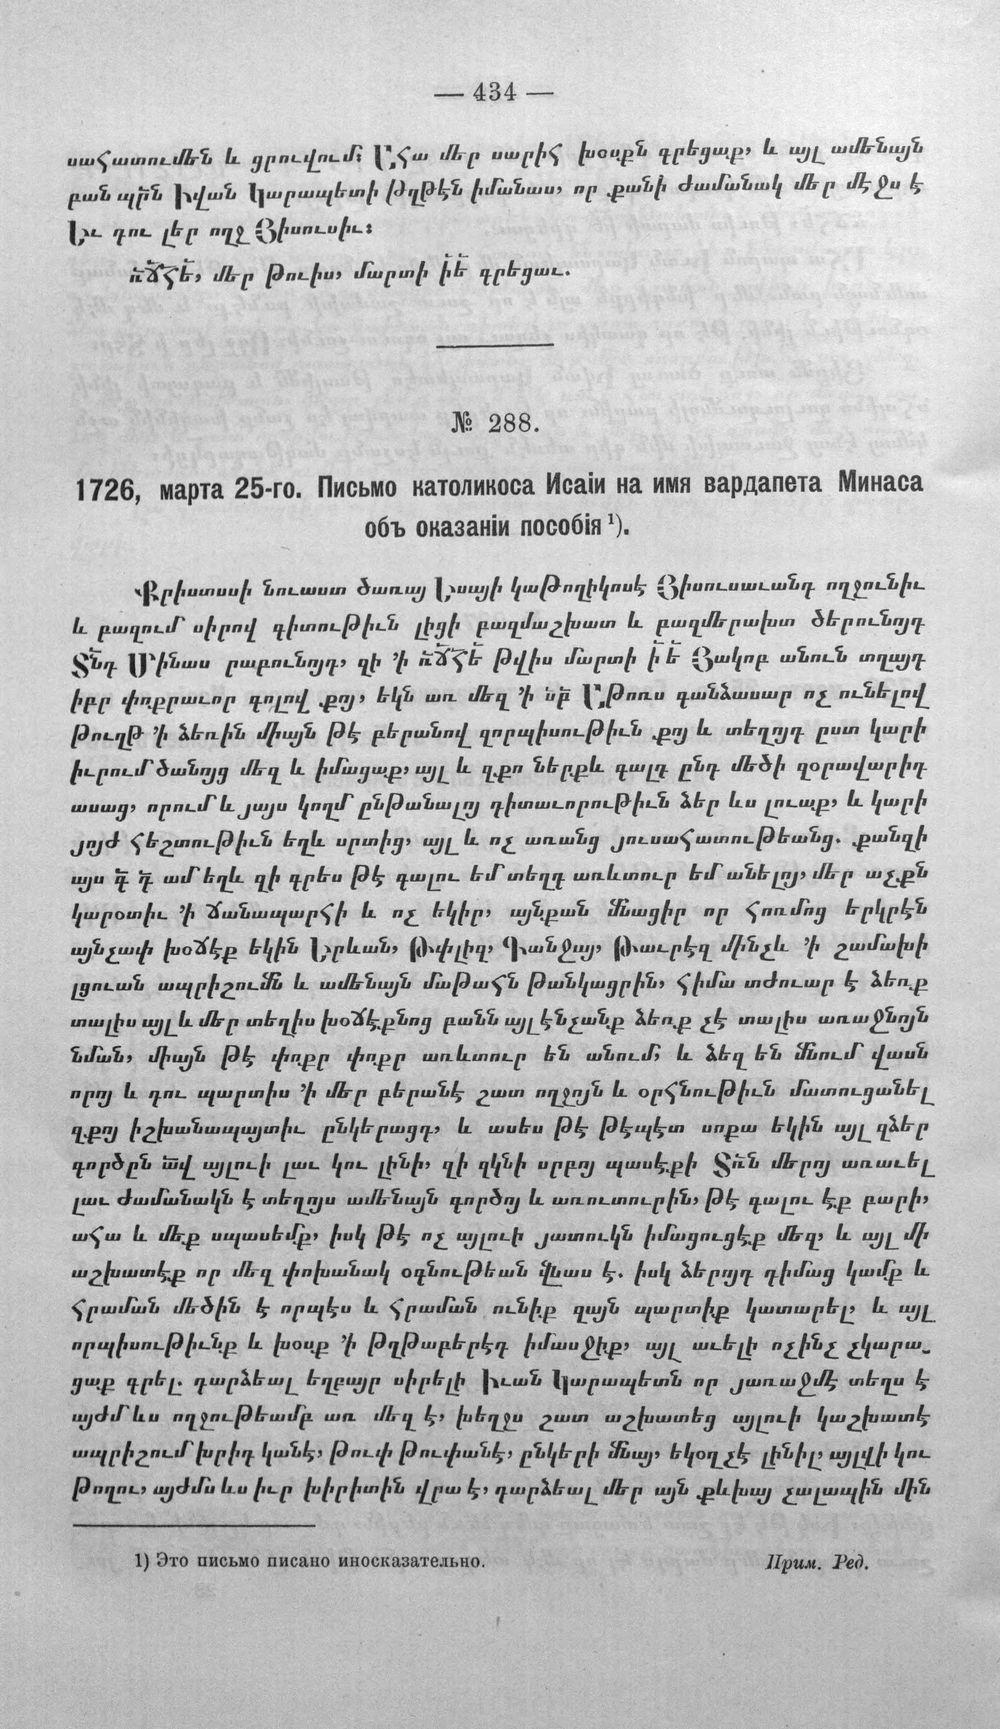 — 434 —
սահատումեն և ցրուվում։ Ահա մեր սարիհ խօսքն գրեցաք, և այլ ամենայն
բան պր՟ն Իվան Կարապետի թղթէն իմանաս, որ քանի ժամանակ մեր մէջս է
Եւ դու լեր ողջ Յիսուսիւ։
ՌՃՀԵ, մեր թուիս, մարտի ԻԵ գրեցաւ.
№ 288.
1726, марта 25-го. Письмо католикоса Исаіи на имя вардапета Минаса
объ оказаніи пособія ¹).
Քրիստոսի նուաստ ծառայ Եսայի կաթողիկոսէ Յիսուսաւանդ ողջունիւ
և բազում սիրով գիտութիւն լիցի բազմաշխատ և բազմերախտ ծերունոյդ
Տն՟դ Մինաս րաբունոյդ, զի ՚ի ՌՃՀԵ թվիս մարտի ԻԵ Յակոբ անուն տղայդ
իբր փոքրաւոր գոլով քոյ, եկն առ մեզ ՚ի սբ՟ Աթոռս գանձասար ոչ ունելով
թուղթ ՚ի ձեռին միայն թէ բերանով զորպիսութիւն քոյ և տեղոյդ ըստ կարի
իւրում ծանոյց մեզ և իմացաք, այլ և զքո ներքև գալդ ընդ մեծի զօրավարիդ
ասաց, որում և յայս կողմ ընթանալոյ դիտաւորութիւն ձեր ևս լուաք, և կարի
յոյժ հեշտութիւն եղև սրտից, այլ և ոչ առանց յուսահատութեանց. քանզի
այս Գ Դ ամ եղև զի գրես թէ գալու եմ տեղդ առևտուր եմ անելոյ, մեր աչքն
կարօտիւ ՚ի ճանապարհի և ոչ եկիր, այնքան մնացիր որ հոռմոց երկրէն
այնչափ խօճէք եկին Երևան, Թփլիզ, Գանջայ, Թաւրէզ մինչև ՚ի շամախի
լցուան ապրիշումն և ամենայն մաթահն թանկացրին, հիմա տժուար է ձեռք
տալիս այլ և մեր տեղիս խօճէքնոց բանն այլ էնչանք ձեռք չէ տալիս առաջնոյն
նման, միայն թէ փոքր փոքր առևտուր են անում, և ձեզ են մնում վասն
որոյ և դու պարտիս ՚ի մեր բերանէ շատ ողջոյն և օրհնութիւն մատուցանել
զքոյ իշխանապատիւ ընկերացդ, և ասես թէ թէպէտ սոքա եկին այլ զձեր
գործըն ա՟վ այլուի լաւ կու լինի, զի զկնի սրբոյ պասէքի Տն՟ մերոյ առաւել
լաւ ժամանակն է տեղոյս ամենայն գործոյ և առուտուրին, թէ գալու էք բարի,
ահա և մեք սպասեմք, իսկ թէ ոչ այլուի յատուկն իմացուցէք մեզ, և այլ մի
աշխատէք որ մեզ փոխանակ օգնութեան վնաս է. իսկ ձերոյդ դիմաց կամք և
հրաման մեծին է որպէս և հրաման ունիք զայն պարտիք կատարել, և այլ
որպիսութիւնք և խօսք ՚ի թղթաբերէդ իմասջիք, այլ աւելի ոչինչ չկարա-
ցաք գրել. դարձեալ եղբայր սիրելի Իւան Կարապետն որ յառաջմէ տեղս է
այժմ ևս ողջութեամբ առ մեզ է, խեղջս շատ աշխատեց այլուի կաշխատէ
ապրիշում խրիդ կանէ, թուփ թուփանէ, ընկերի մնայ, եկօղ չէ լինիլ, այլվի կու
թողու, այժմս ևս իւր խիրիտին վրա է, դարձեալ մեր այն քևխայ չալապին մին
1) Это письмо писано иносказательно. Прим. Ред.